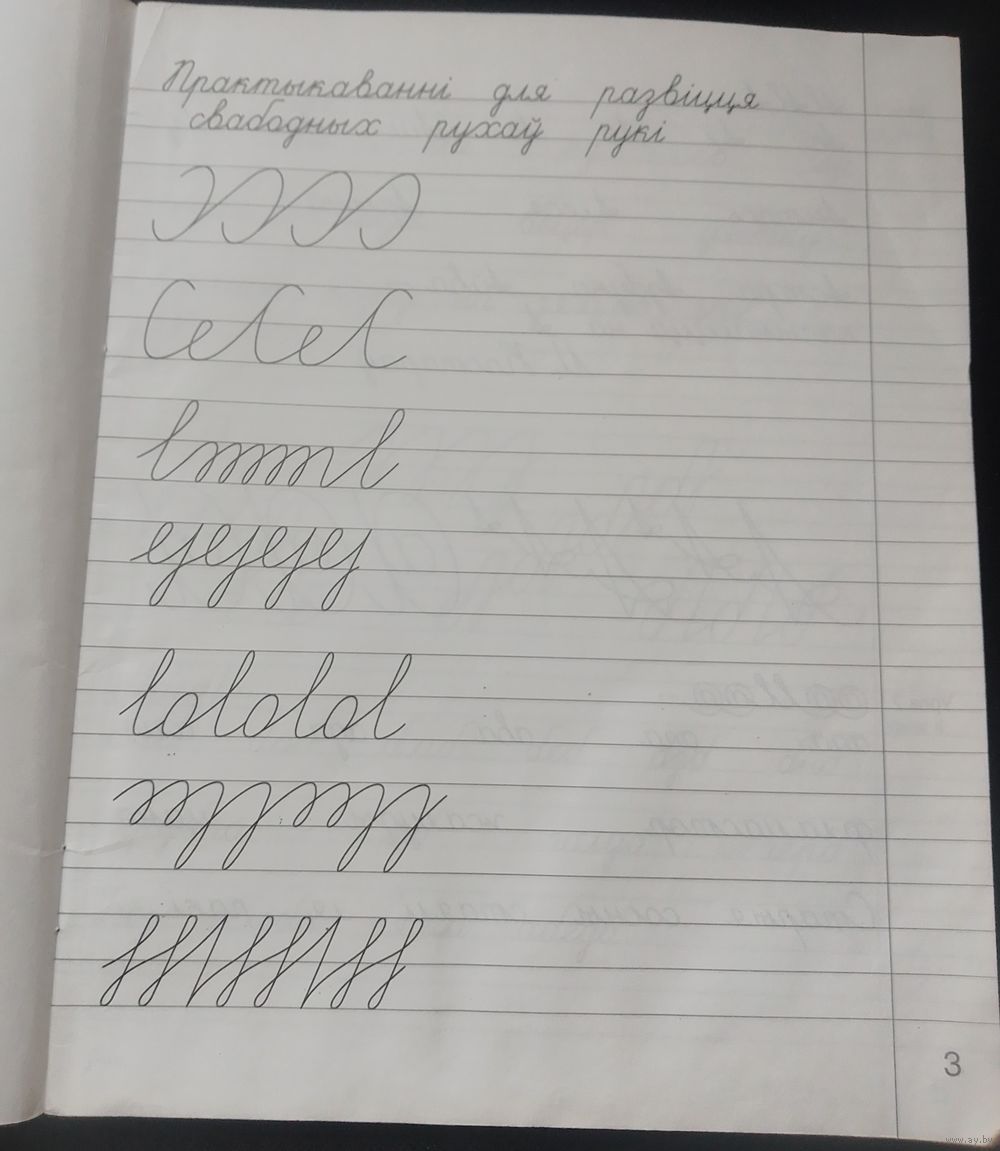 Практыкаванні для развіцця
свабодных рухаў рукі
3
www.ay.by